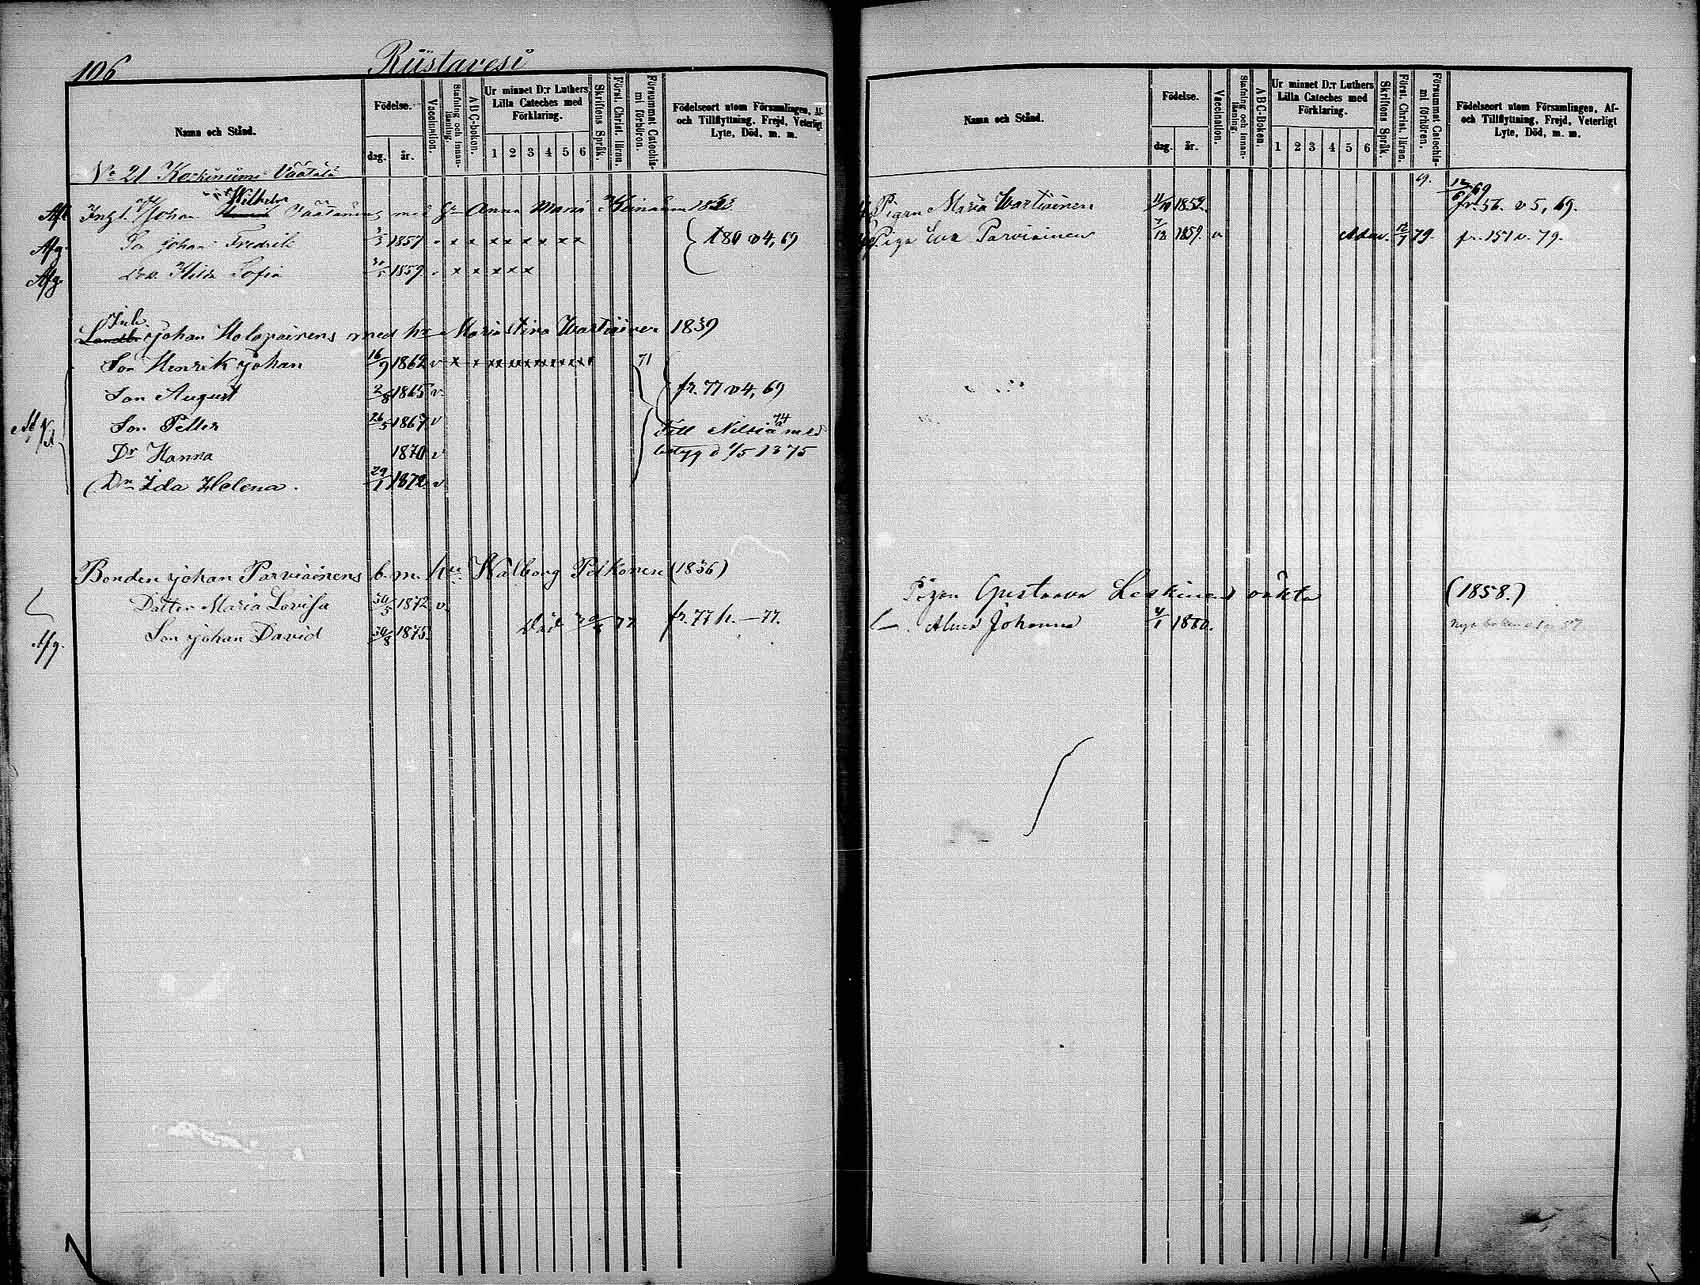 106 Riistavesi
Nama och Stånd.
Födelse.
dag. år.
Vaccination.
Stafning och innan-läsning.
A B C-boken.
Ur minnet D:r Luthers Lilla Cateches med Förklaring.
1 2 3 4 5 6
Skriftens Språk.
Först. Christ. läran.
Försummat Catechis-mi förhören.
Födelseort utom Församlingen, Af-
och Tillflyttning, Frejd, Veterligt
Lyte, Död, m. m.
No 21 Väätälä
Johan Wilhelm Väätäinens med Anna Maria
Afg. Son Johan Fredrik 1857 x x x x x x x x
Afg. Hilda Sofia 1859 x x x x x x
180 v 4, 69
Inh.
Johan Holopainens med hu Maria Stina Wartiainen 1839
Son Henrik Johan 16/9 1862 v x x x x x x x x x 71
Son August 2/8 1865 v fr. 77 v 4, 69
Son Petter 26/5 1867 v Till Nilsiä med
Dr Hanna 1870 v betyg d 1/5 1875
Dr Ida Helena. 29/1 1872 v
Bonden Johan Parviainens b. m. hu Walborg Pelkonen (1836)
Dotter Maria Lovisa 30/5 1872 v.
Afg. Son Johan David 30/8 1875. Död 77 fr. 77 h. – 77.
Nama och Stånd.
Födelse.
dag. år.
Vaccination.
Stafning och innan-läsning.
A B C-Boken.
Ur minnet D:r Luthers Lilla Cateches med Förklaring.
1 2 3 4 5 6
Skriftens Språk.
Först. Christ. läran.
Försummat Catechis-mi förhören.
Födelseort utom Församlingen, Af-
och Tillflyttning, Frejd, Veterligt
Lyte, Död, m. m.
Pigan Maria Wartiainen 1852. fr. 56. v 5, 69.
Piga Eva Parviainen 1859. v 79. fr. 151 v. 79.
Pigan Gustaava Leskinens oäkta (1858.)
Alma Johanna 4/1 1880.